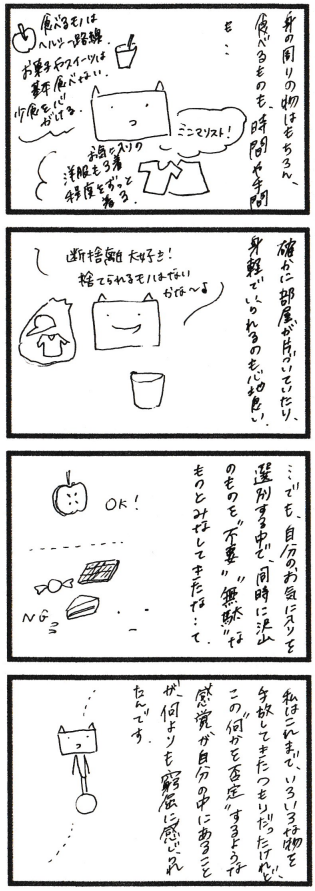 身の周りの物はもちろん、
食べるものも、時間や手間
も…
食べるモノは
ヘルシー路線。
お菓子やスイーツは
基本食べない。
少食を心
がける。
ミニマリスト!
お気に入りの
洋服も3着
程度をずっと
着る。
確かに部屋が片づいていたり、
身軽でいられるのも心地良い。
断捨離大好き!
捨てられるモノはない
かな〜♪
…でも、自分のお気に入りを
選別する中で、同時に沢山
のものを"不要""無駄"な
ものとみなしてきたな…て。
OK!
NG
私はこれまで、いろいろな物を
手放してきたつもりだったけれど、
この"何かを否定"するような
感覚が自分の中にあること
が、何よりも窮屈に感じられ
たんです。